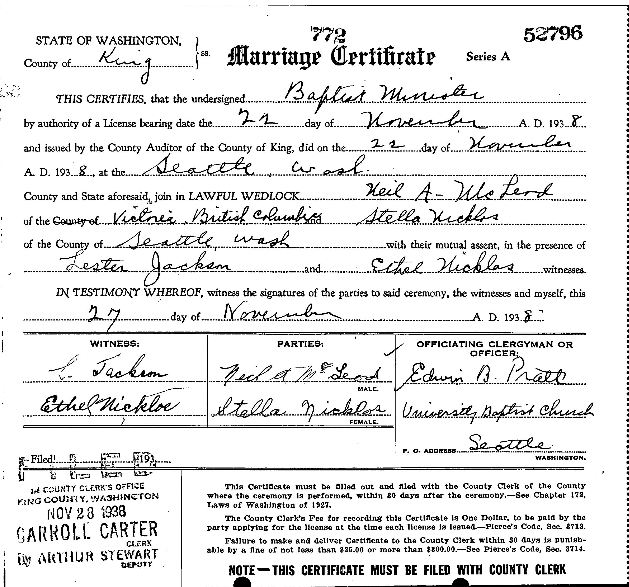 772
52796
STATE OF WASHINGTON,
County of King
ss.
Marriage Certificate
Series A
THIS CERTIFIES, that the undersigned Baptist Minister
by authority of a License bearing date the 22 day of November A. D. 1938
and issued by the County Auditor of the County of King, did on the 22 day of November
A. D. 1938, at the Seattle, Wash.
County and State aforesaid, join in LAWFUL WEDLOCK Neil A. McLeod
of the County of Victoria British Columbia Stella Nicklos
of the County of Seattle, Wash with their mutual assent, in the presence of
Lester Jackson and Ethel Nicklos witnesses.
IN TESTIMONY WHEREOF, witness the signatures of the parties to said ceremony, the witnesses and myself, this
27 day of November A. D. 1938
WITNESS: PARTIES: OFFICIATING CLERGYMAN OR OFFICER:
L. Jackson Neil A McLeod Edwin B. Pratt
MALE.
Ethel Nicklos Stella Nicklos University Baptist Church
FEMALE.
Seattle
P. O. ADDRESS
WASHINGTON.
Filed 193
IN COUNTY CLERK'S OFFICE
KING COUNTY, WASHINGTON
NOV 28 1938
CARROLL CARTER
CLERK
By ARTHUR STEWART
DEPUTY
This Certificate must be filled out and filed with the County Clerk of the County
where the ceremony is performed, within 30 days after the ceremony.—See Chapter 172,
Laws of Washington of 1927.
The County Clerk's Fee for recording this Certificate is One Dollar, to be paid by the
party applying for the license at the time each license is issued.—Pierce's Code, Sec. 3713.
Failure to make and deliver Certificate to the County Clerk within 30 days is punish-
able by a fine of not less than $25.00 or more than $300.00—See Pierce's Code, Sec. 3714.
NOTE—THIS CERTIFICATE MUST BE FILED WITH COUNTY CLERK